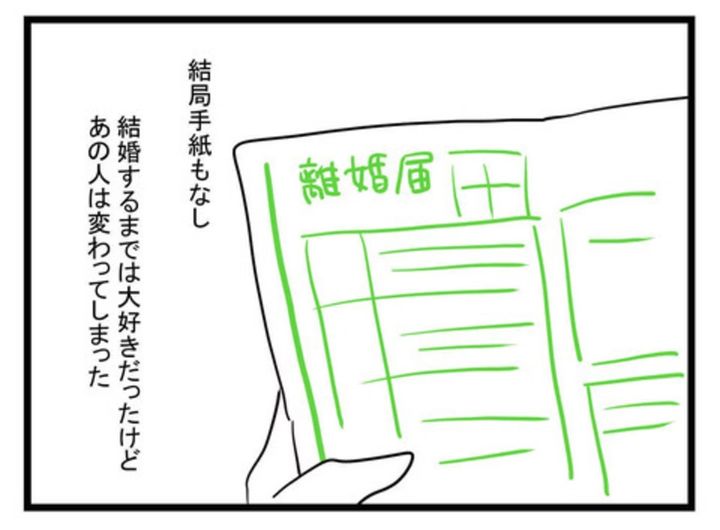 結局手紙もなし
結婚するまでは大好きだったけど
あの人は変わってしまった
離婚届